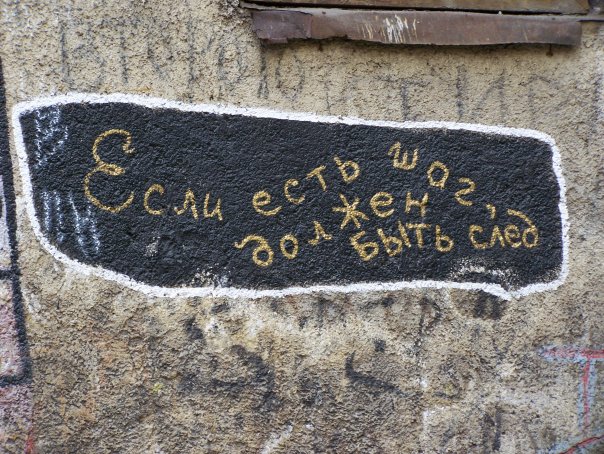 Если есть шаг,
должен быть след